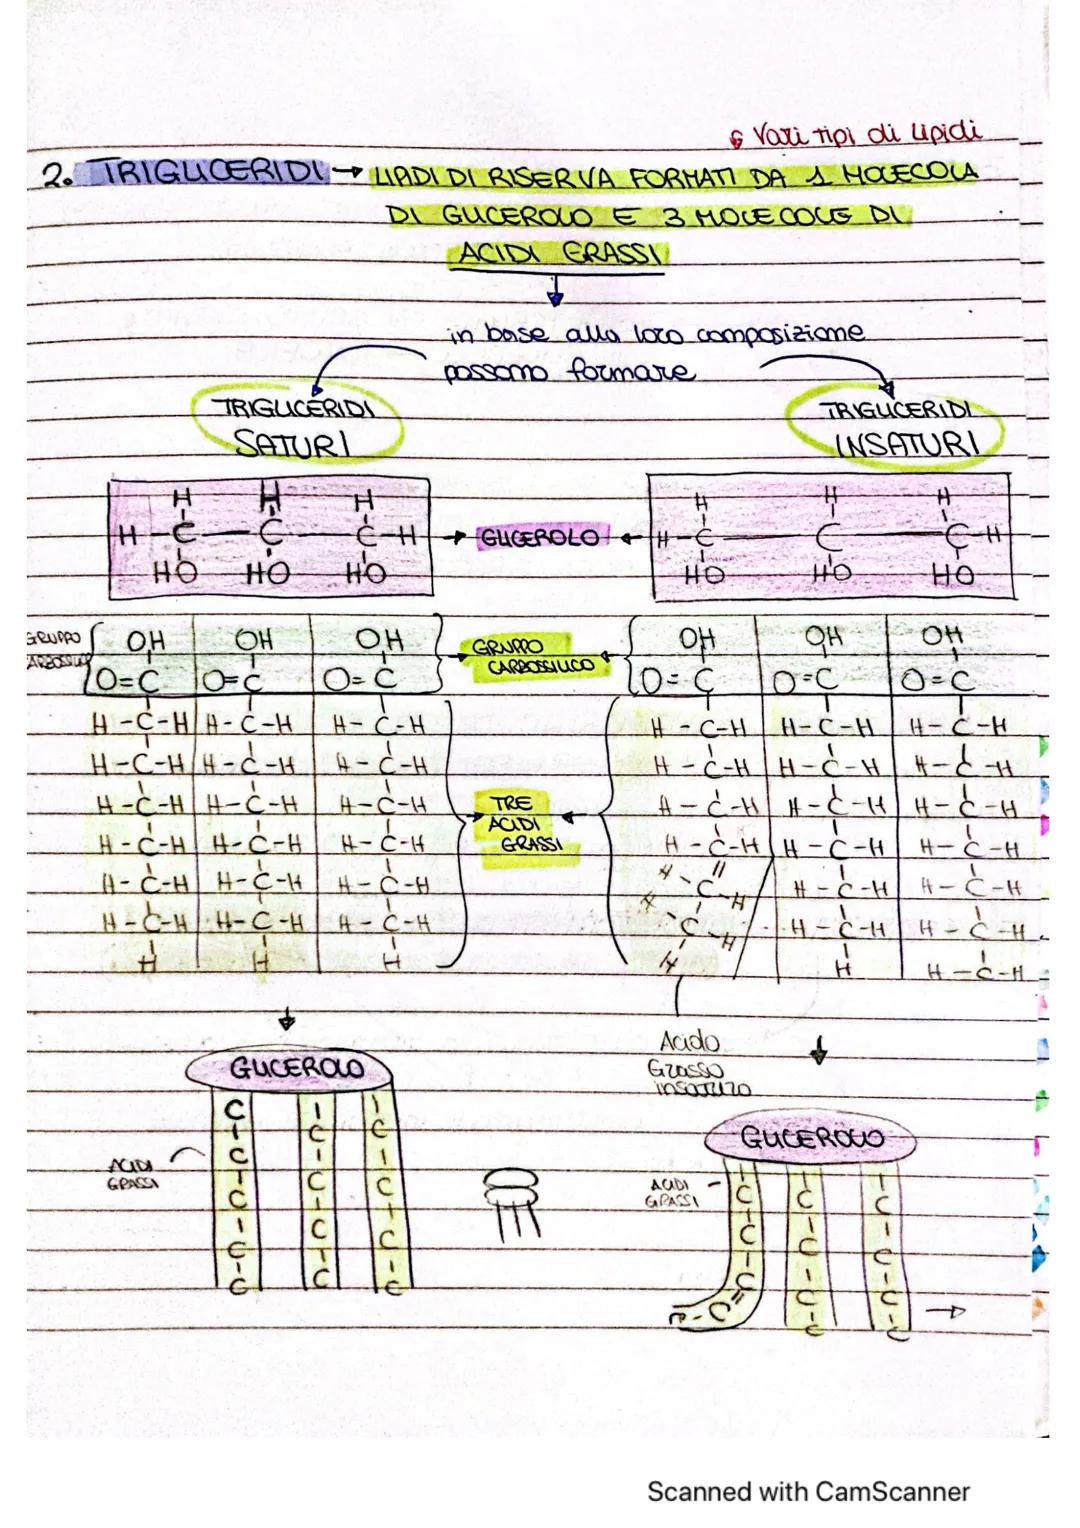 Vari tipi di lipidi
2. TRIGLICERIDI → LIPIDI DI RISERVA FORMATI DA 1 MOLECOLA
DI GLICEROLO E 3 MOLECOLE DI
ACIDI GRASSI
in base alla loro composizione
possono formare
TRIGLICERIDI
SATURI
TRIGLICERIDI
INSATURI
H H H
H-C—C—C-H
HO HO HO
→ GLICEROLO ←
H H H
H-C—C—C-H
HO HO HO
GRUPPO
CARBOSSILICO
OH OH OH
O=C O=C O=C
GRUPPO
CARBOSSILICO
OH OH OH
O=C O=C O=C
H-C-H H-C-H H-C-H H-C-H H-C-H H-C-H
H-C-H H-C-H H-C-H H-C-H H-C-H H-C-H
H-C-H H-C-H H-C-H H-C-H H-C-H H-C-H
H-C-H H-C-H H-C-H H-C-H H-C-H H-C-H
H-C-H H-C-H H-C-H H-C-H H-C-H H-C-H
H-C-H H-C-H H-C-H C-H H-C-H H-C-H
H H H H H H-C-H
TRE
ACIDI
GRASSI
Acido
Grasso
insaturo
GLICEROLO
ACIDI
GRASSI
C-C-C-C-C
C-C-C-C
C-C-C-C
GLICEROLO
ACIDI
GRASSI
C-C-C=C-C
C-C-C-C
C-C-C-C
Scanned with CamScanner